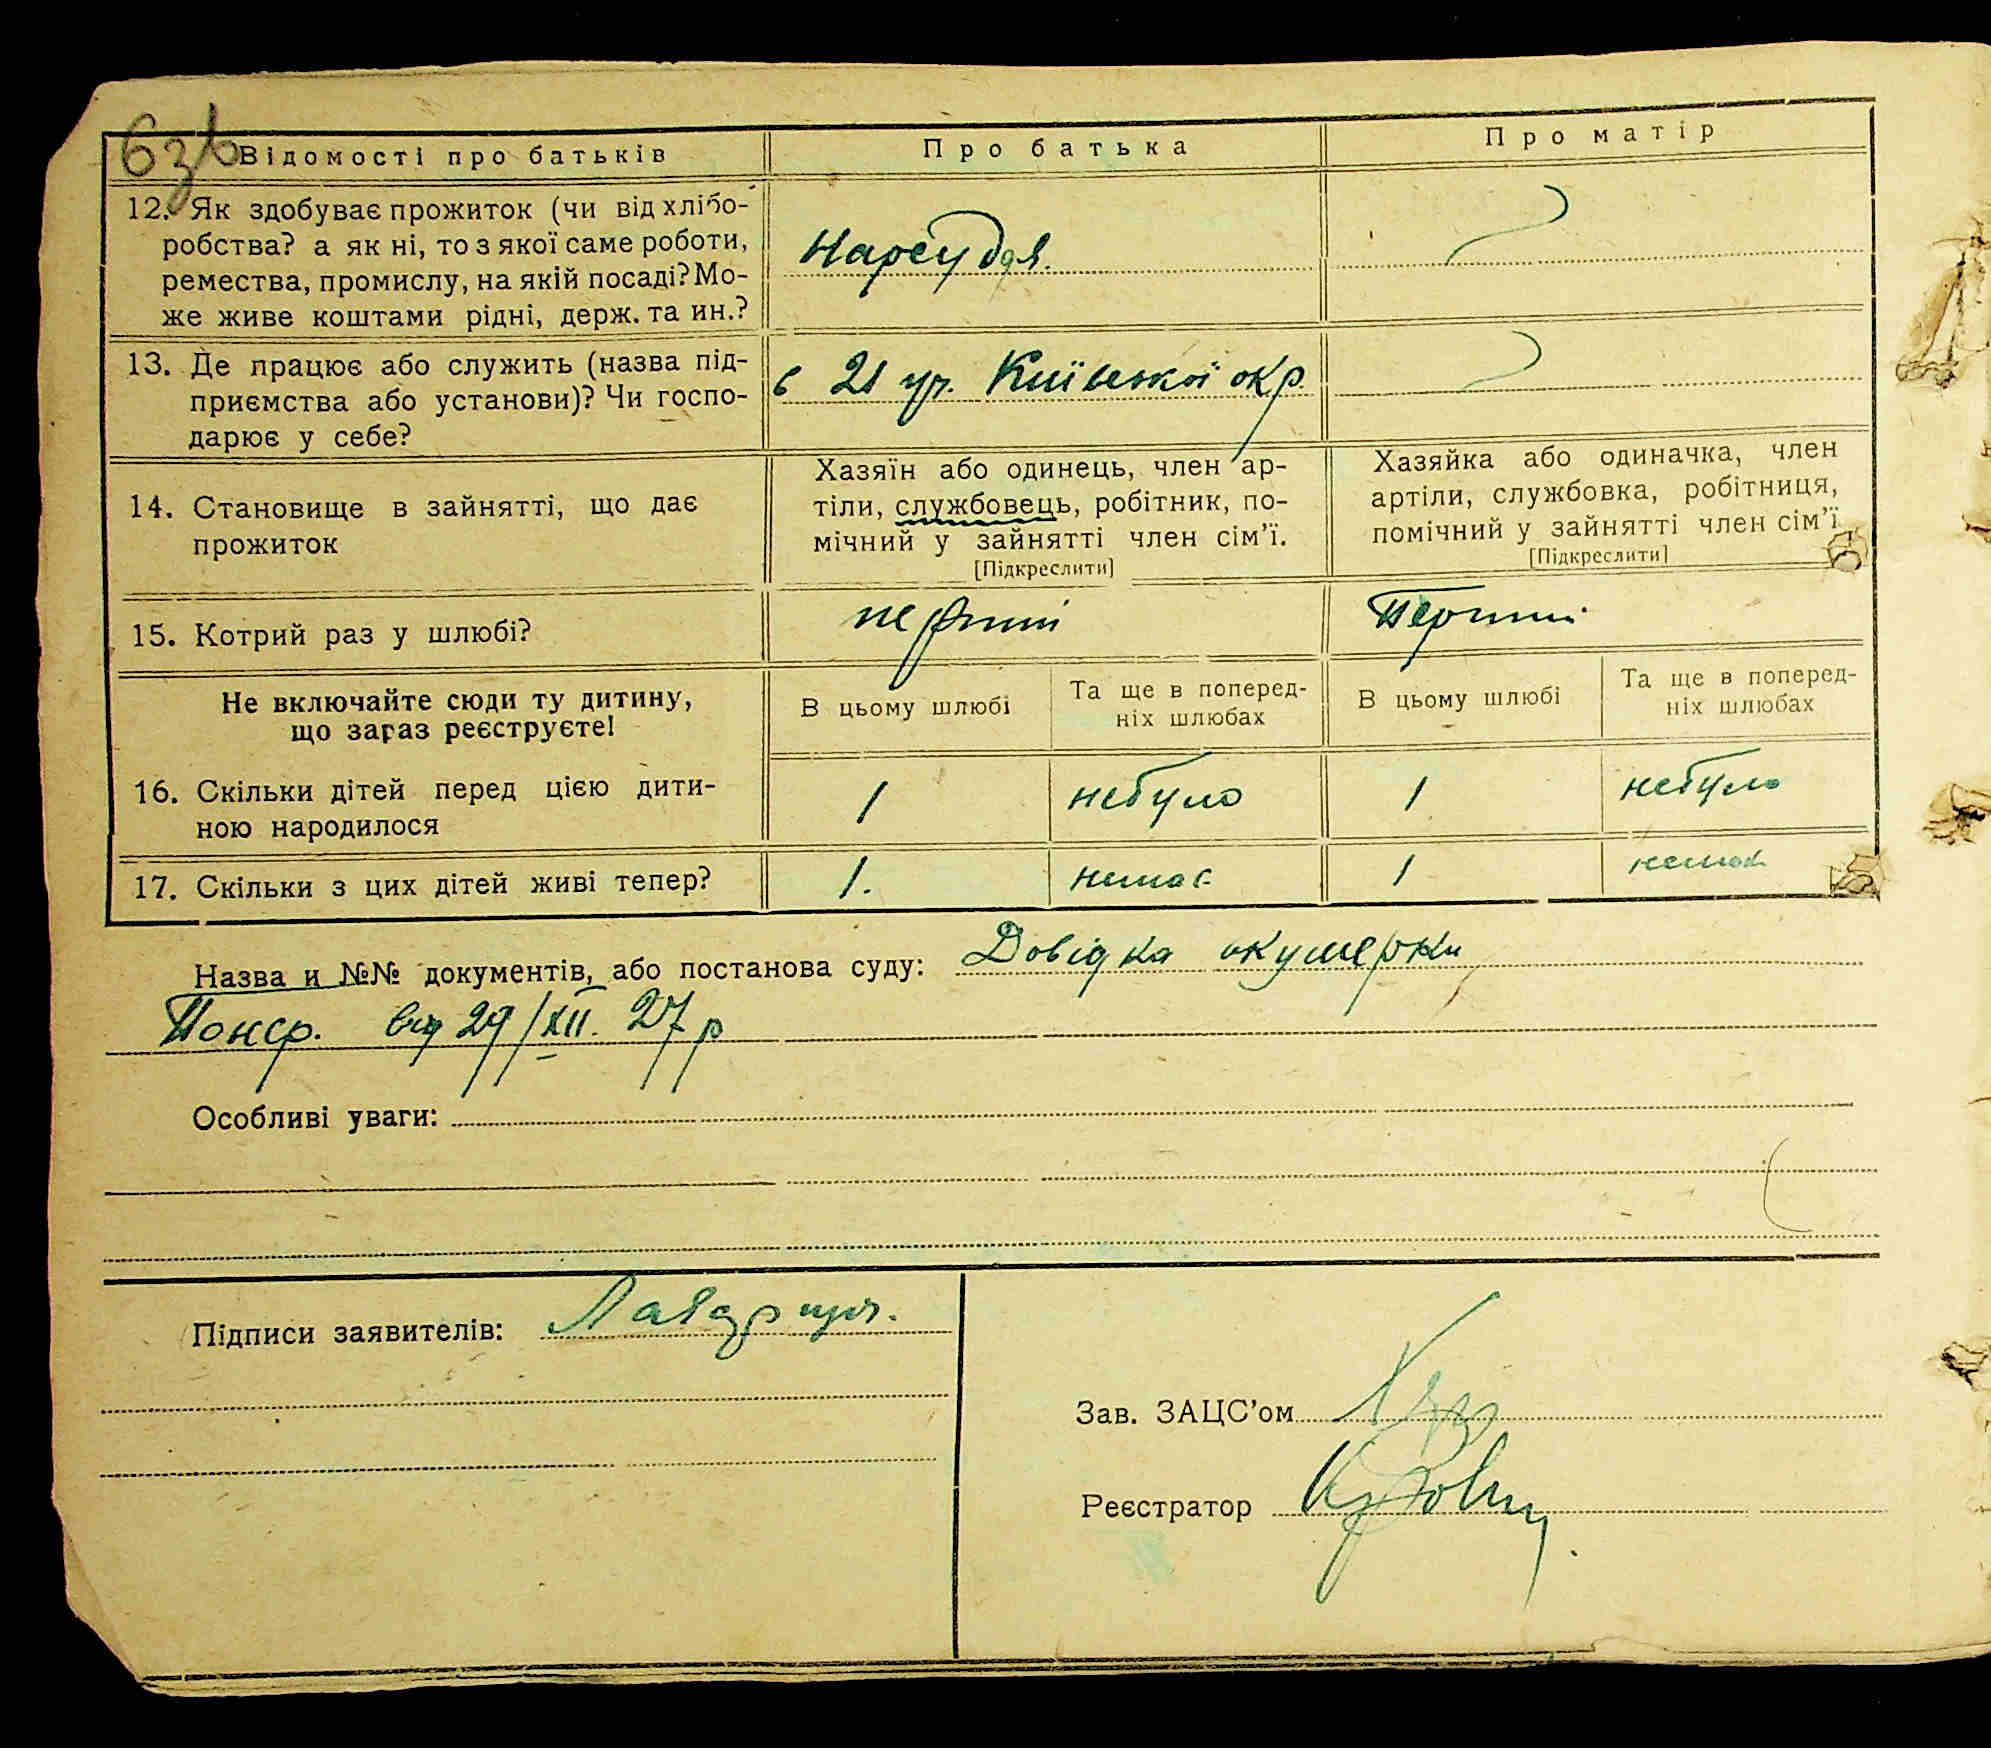 6зв
Відомості про батьків Про батька Про матір
12. Як здобуває прожиток (чи від хлібо-
робства? а як ні, то з якої саме роботи,
ремества, промислу, на якій посаді? Мо-
же живе коштами рідні, держ. та ин.?
Нарсуддя.
13. Де працює або служить (назва під-
приємства або установи)? Чи госпо-
дарює у себе?
в 21 уч. Київської окр.
14. Становище в зайнятті, що дає
прожиток
Хазяїн або одинець, член ар-
тіли, службовець, робітник, по-
мічний у зайнятті член сім'ї.
[Підкреслити]
Хазяйка або одиначка, член
артіли, службовка, робітниця,
помічний у зайнятті член сім'ї
[Підкреслити]
15. Котрий раз у шлюбі? перший Перший
Не включайте сюди ту дитину,
що зараз реєструєте!
В цьому шлюбі
Та ще в поперед-
ніх шлюбах
В цьому шлюбі
Та ще в поперед-
ніх шлюбах
16. Скільки дітей перед цією дити-
ною народилося
1 небуло 1 небуло
17. Скільки з цих дітей живі тепер? 1. немає 1 немає
Назва и №№ документів, або постанова суду: Довідка акушерки
від 29/XII. 27 р
Особливі уваги:
Підписи заявителів:
Зав. ЗАЦС'ом
Реєстратор